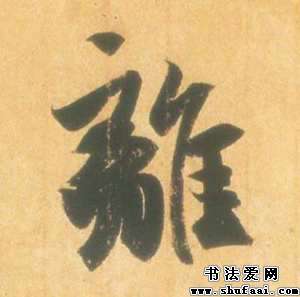 離
书法爱网
www.shufaai.com